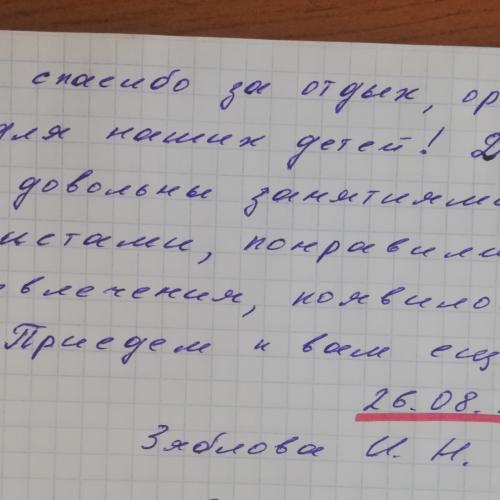 спасибо за отдых, ор
для наших детей! Д
довольны занятиями
истами, понравили
звлечения, появило
Приедем к вам ещ
26.08.
Зяблова И. Н.